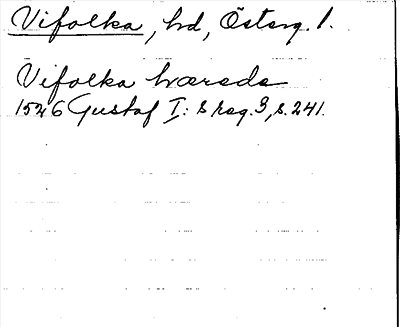 Vifolka, hd, Österg. l.
Vifolka hærade
1526 Gustaf I: s reg. 3, s. 241.